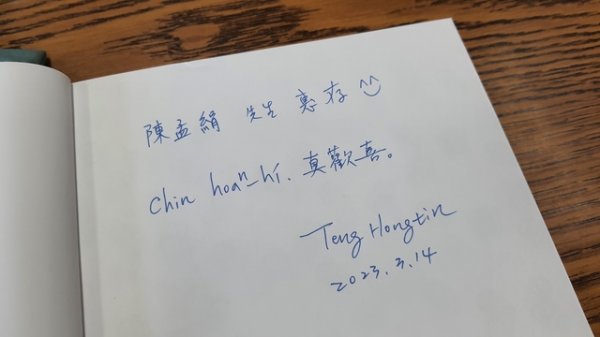 陳孟絹 先生 惠存 ^^
Chin hoaⁿ-hí. 真歡喜。
Teng Hongtin
2023.3.14